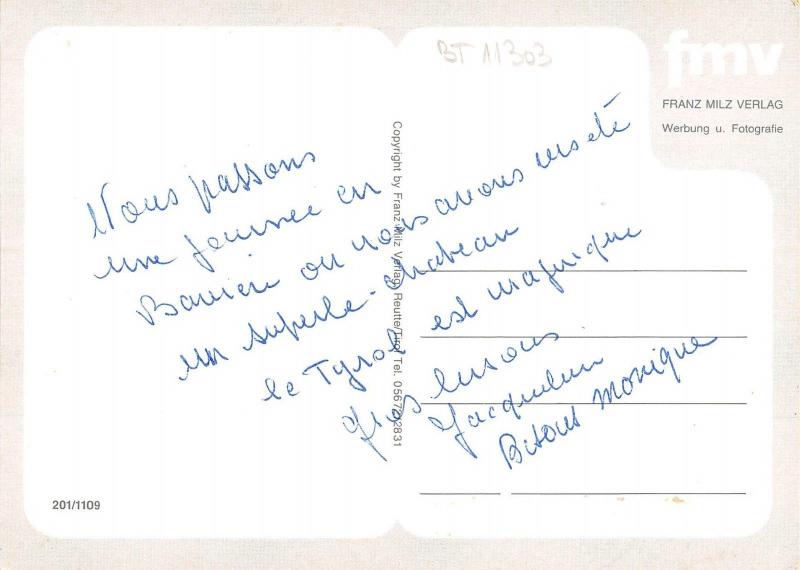 BT 11303
fmv
FRANZ MILZ VERLAG
Werbung u. Fotografie
Nous passons
une journee en
Baviere ou nous avons visité
un superbe chateau
le Tyrol est magnique
gros bisous
Jacqueline
Bisous monique
Copyright by Franz Milz Verlag, Reutte/Tirol Tel. 05672/2831
201/1109